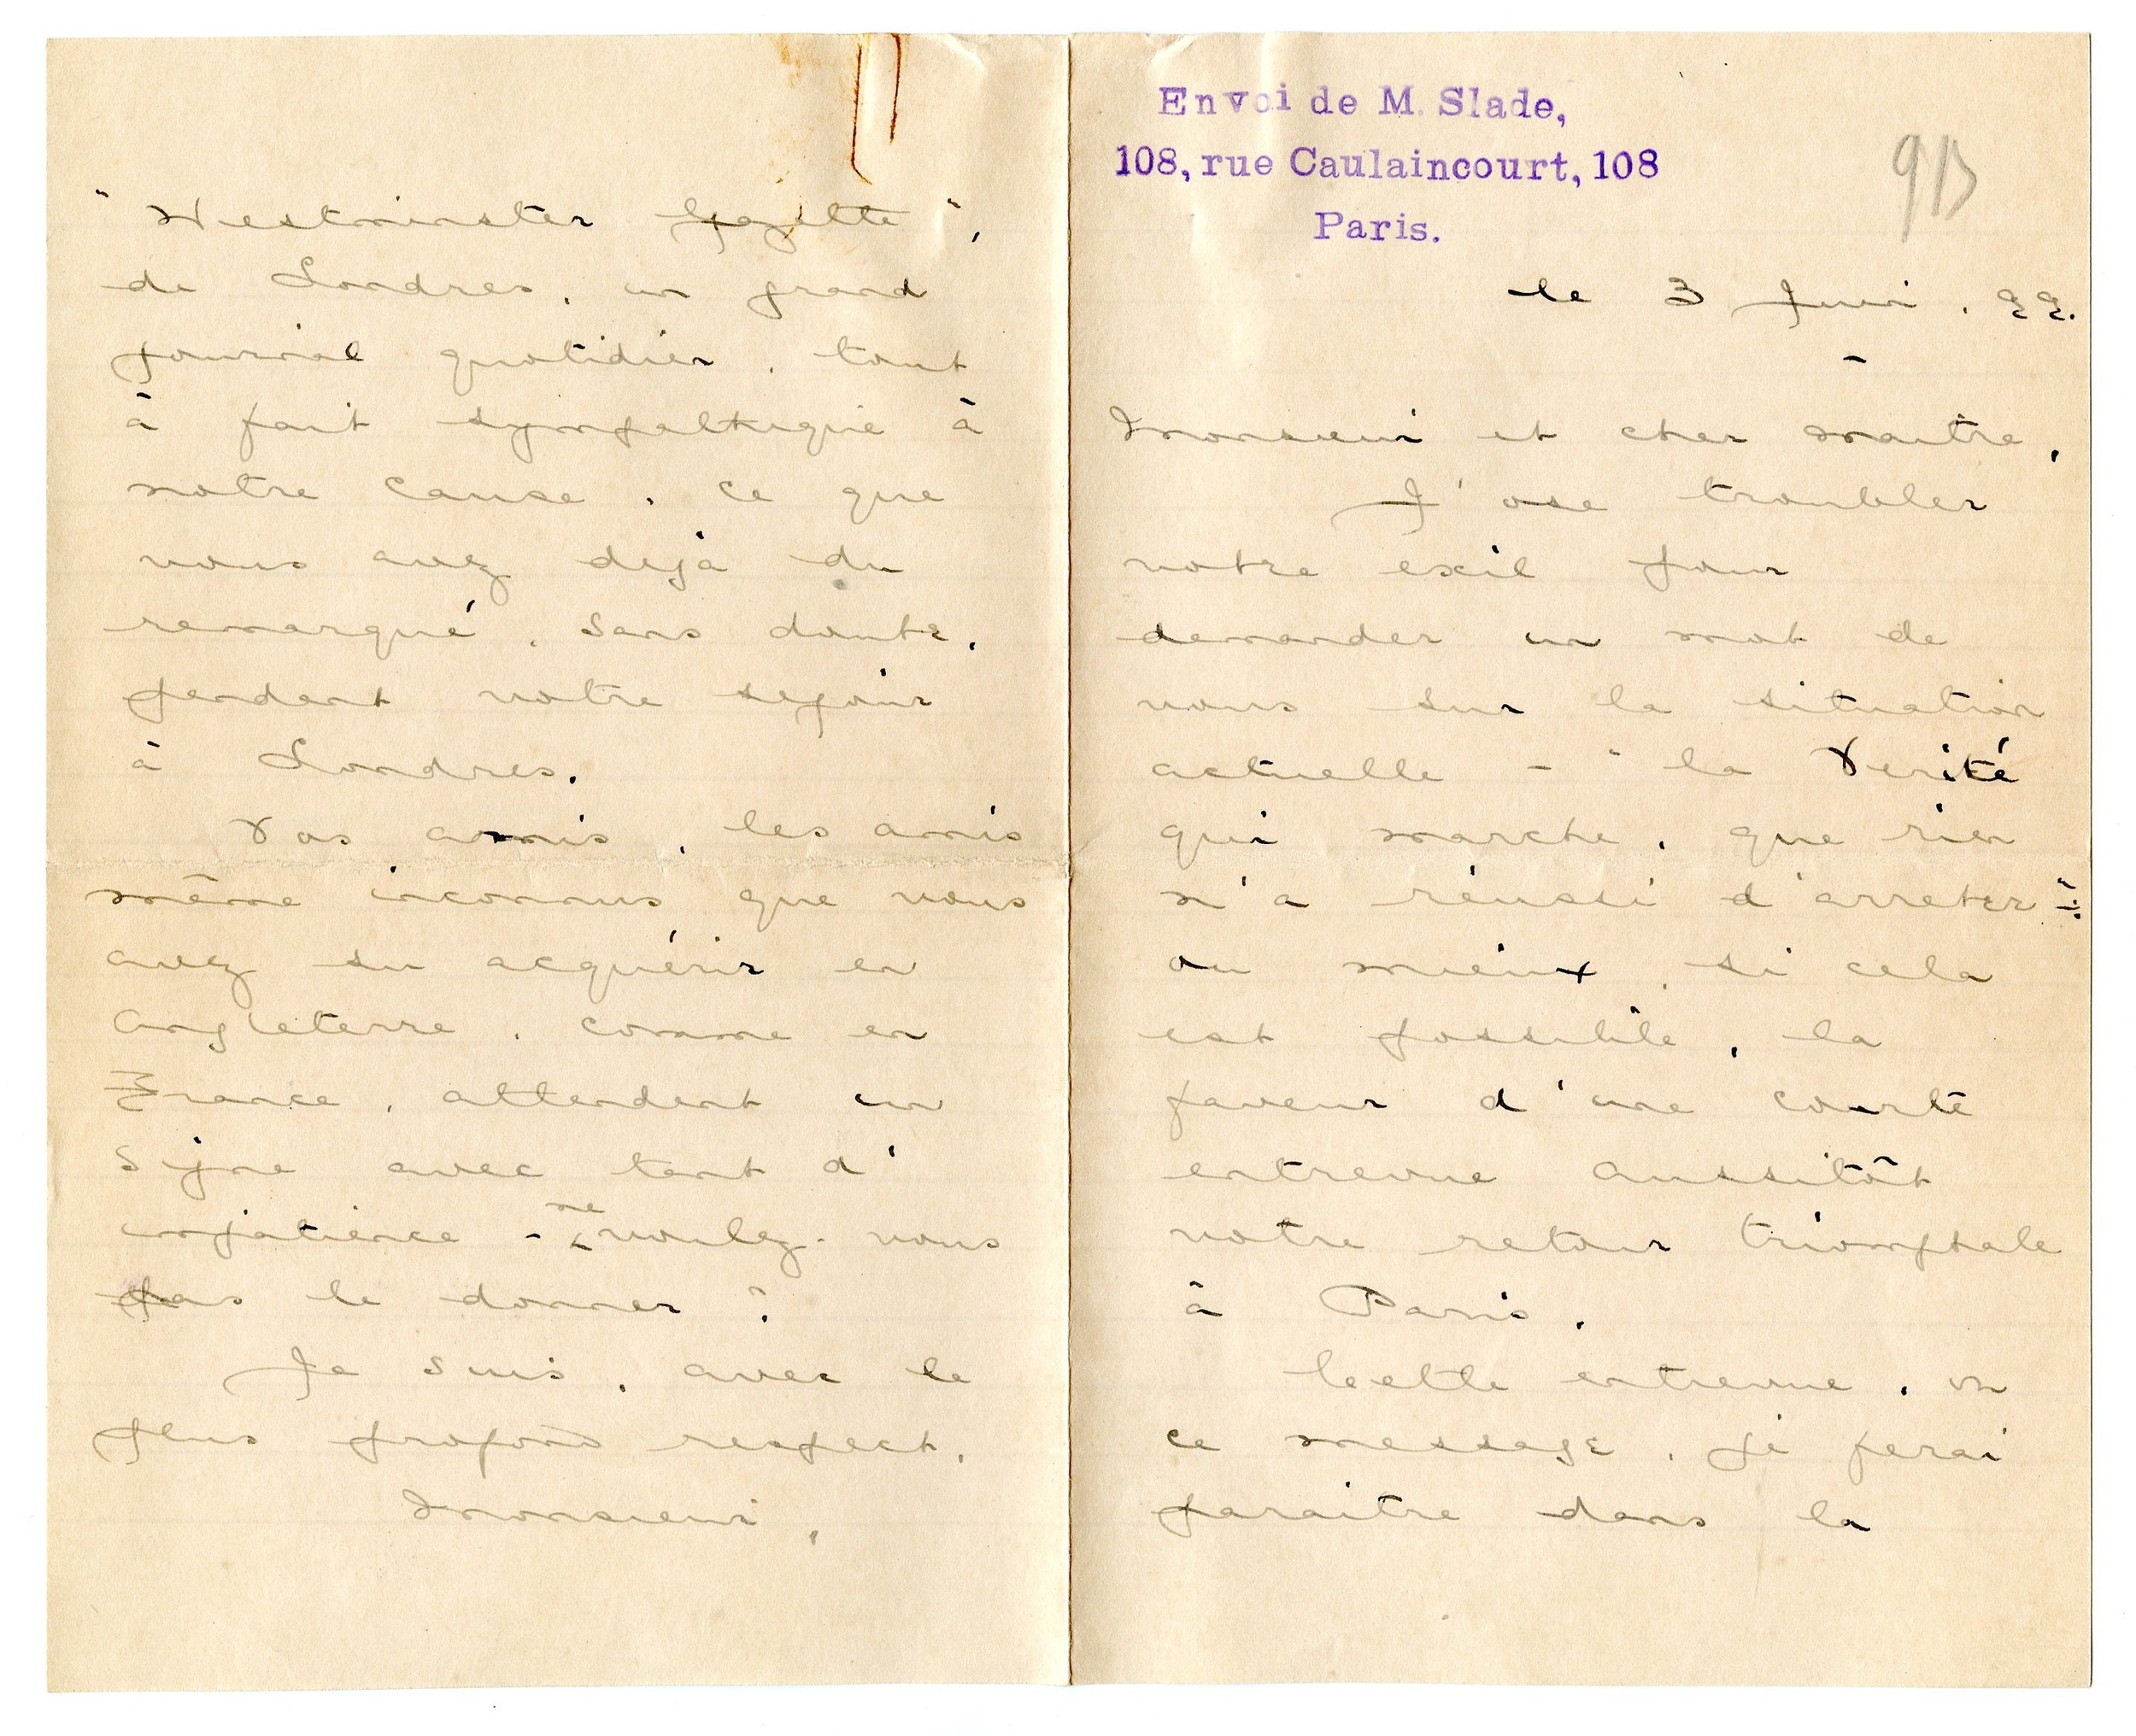 Envoi de M. Slade,
108, rue Caulaincourt, 108
Paris.
913
le 3 Juin. 99.
-
Monsieur et cher maître,
J'ose troubler
votre exil pour
demander un mot de
vous sur la situation
actuelle - "la Verité
qui marche, que rien
n'a réussi d'arreter";
ou mieux, si cela
est possible, la
faveur d'une courte
entrevue aussitôt
votre retour triomphale
à Paris.
Cette entrevue, ou
ce message, je ferai
paraitre dans la
"Westminster Gazette",
de Londres, un grand
journal quotidien, tout
à fait sympathique à
notre cause, ce que
vous avez dejà du
remarqué, sans doute,
pendent votre sejour
à Londres.
Vos amis, les amis
même inconnus que vous
avez su acquérir en
Angleterre, comme en
France, attendent un
signe avec tant d'
impatience - ne voulez-vous
pas le donner?
Je suis, avec le
plus profond respect,
Monsieur,